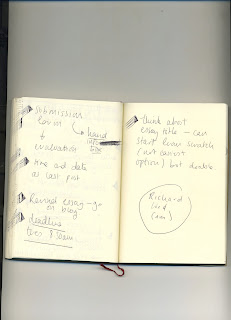 Submission
form
+
evaluation
hand
into
box
time and date
as last post
Revised essay -
on blog
deadline
Think about
essay title - can
start from scratch
(not easiest
option) but doable.
Richard